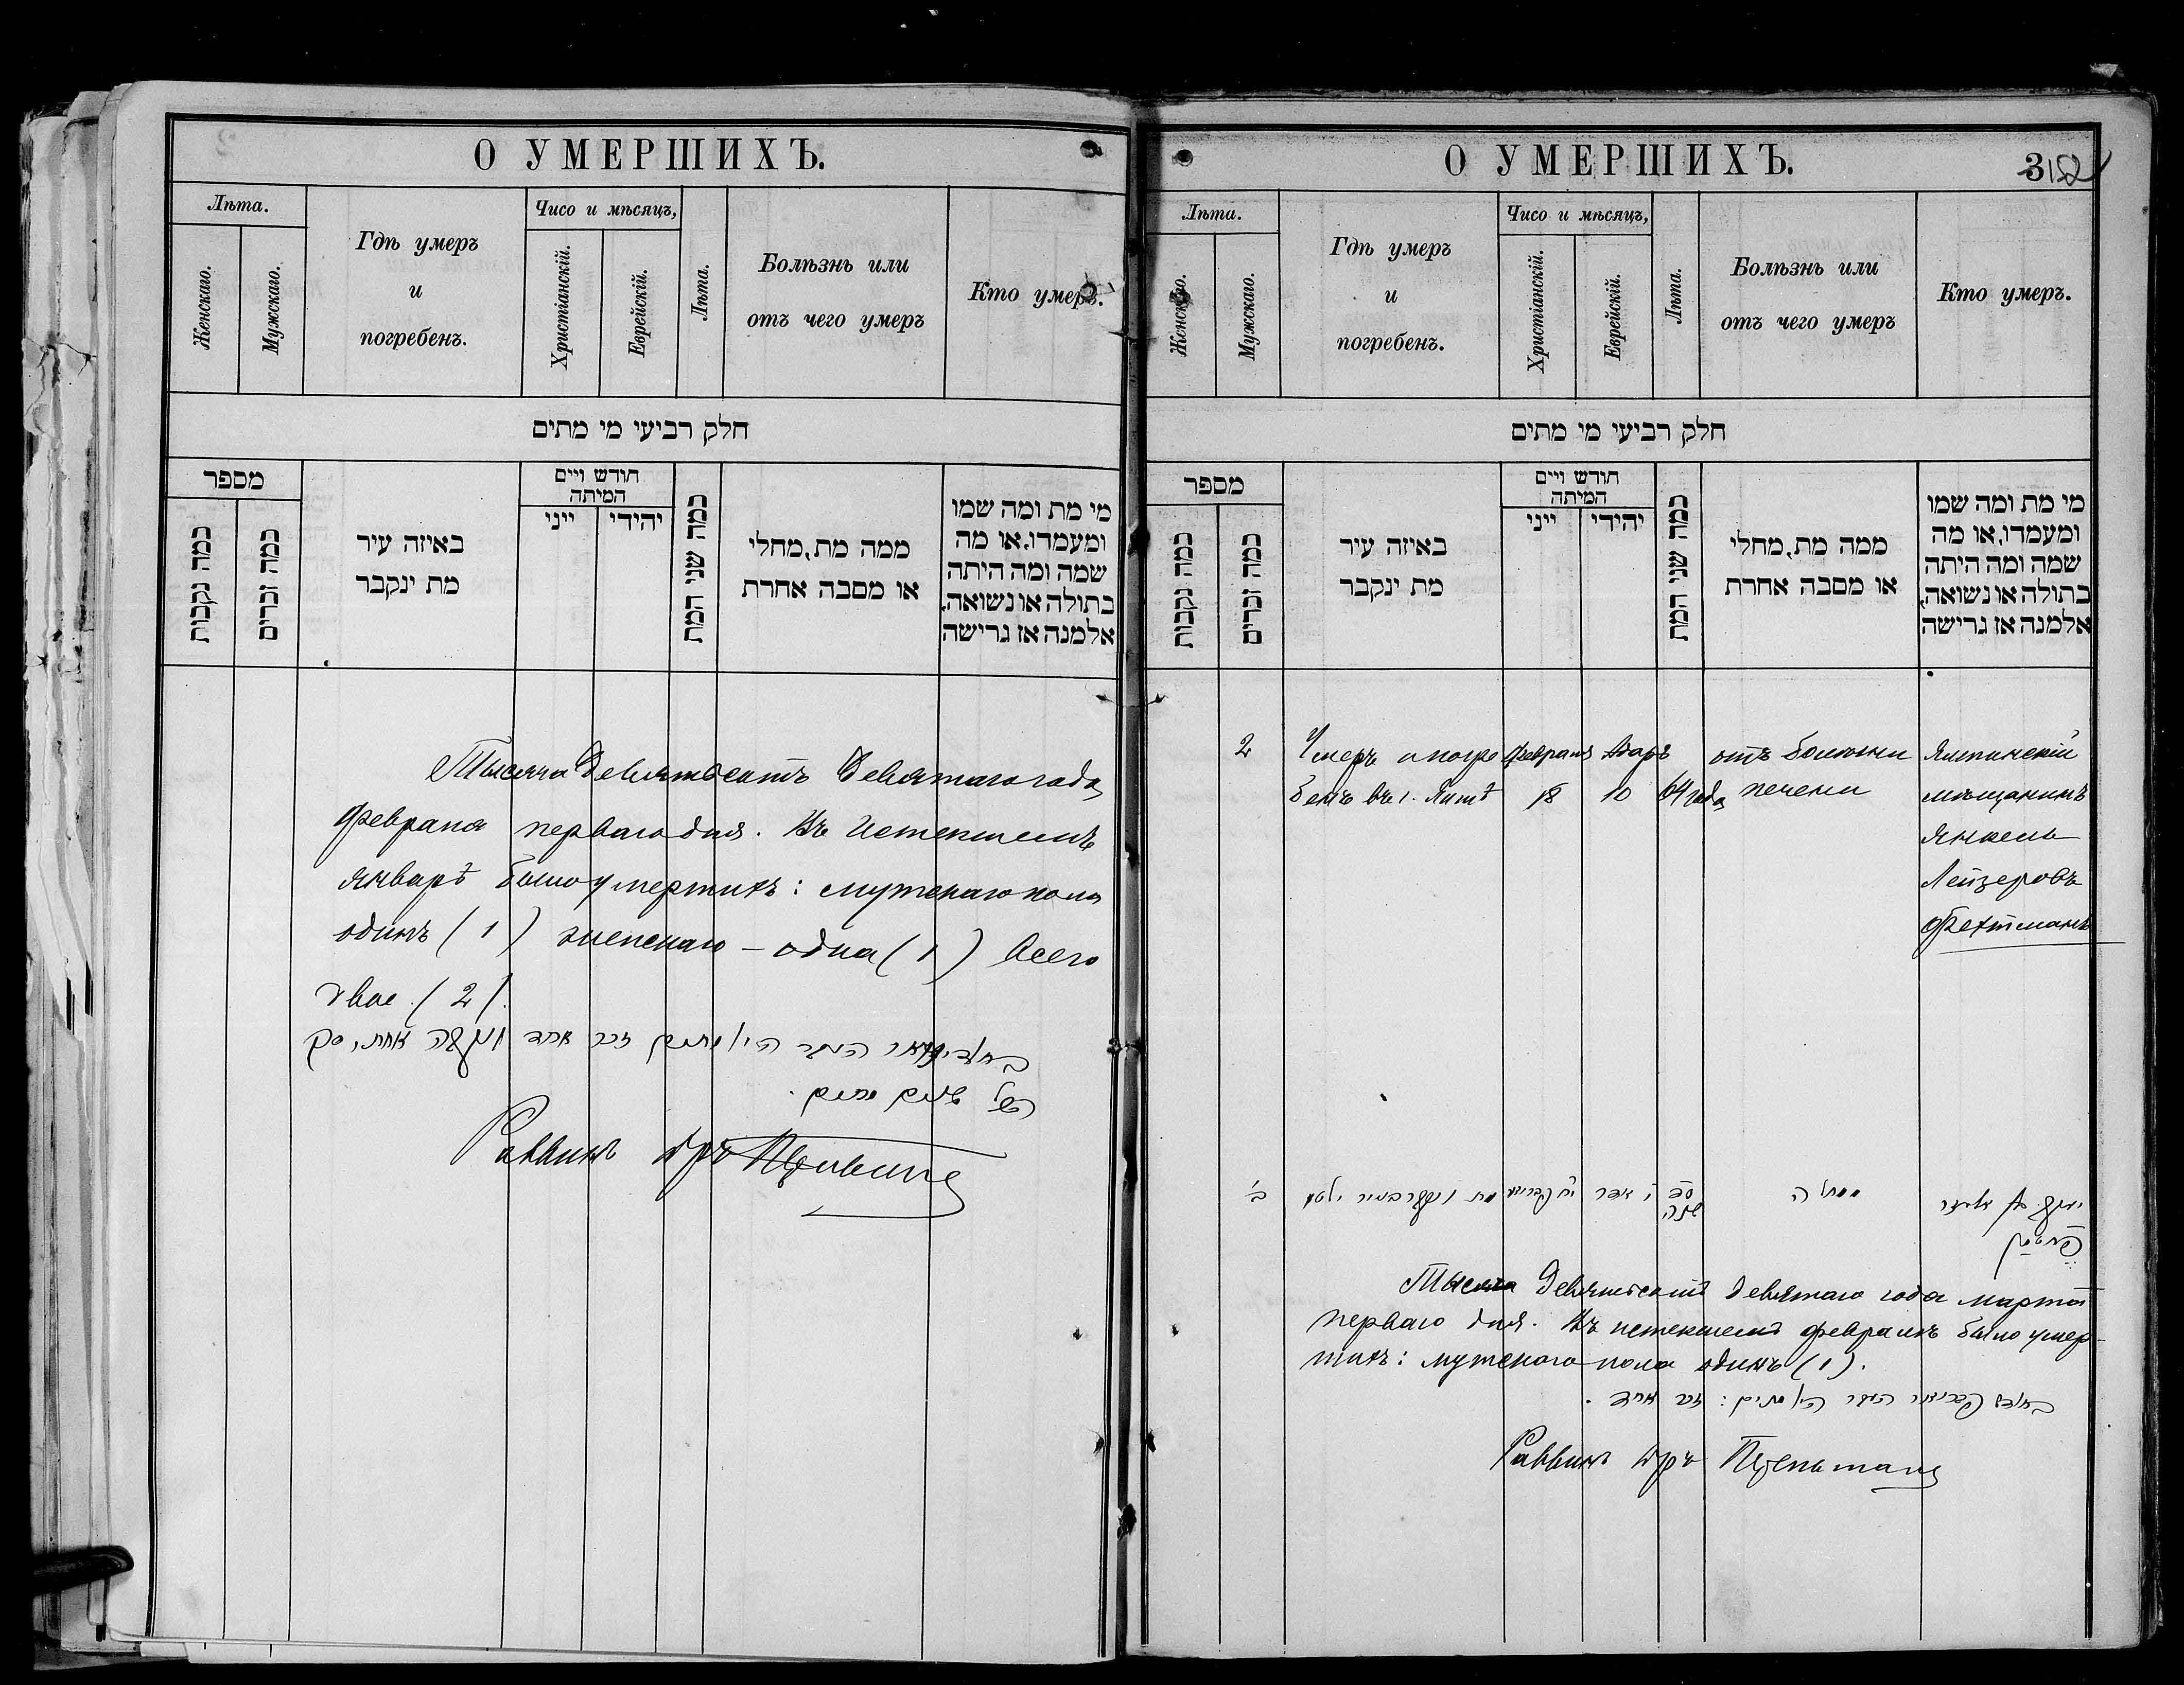 О УМЕРШИХЪ.
Лѣта.
Женскаго.
Мужскаго.
Гдѣ умеръ
и
погребенъ.
Чисо и мѣсяцъ,
Христіанскій.
Еврейскій.
Лѣта.
Болѣзнь или
отъ чего умеръ
Кто умеръ.
חלק רביעי מי מתים
מספר
כמה נקבות
כמה זכרים
באיזה עיר
מת ינקבר
חודש ויים
המיתה
ייני
יהידי
כמה שני המת
ממה מת, מחלי
או מסבה אחרת
מי מת ומה שמו
ומעמדו, או מה
שמה ומה היתה
בתולה או נשואה,
אלמנה אז גרישה
Тысяча девятьсотъ девятаго года
февраля перваго дня. Въ истекшемъ
январѣ было умершихъ: мужскаго пола
одинъ (1) женскаго - одна (1) Всего
двое (2).
זכר אחד ונקבה אחת, סך
הכל שנים מתים.
Раввинъ
О УМЕРШИХЪ.
3
Лѣта.
Женскаго.
Мужскаго.
Гдѣ умеръ
и
погребенъ.
Чисо и мѣсяцъ,
Христіанскій.
Еврейскій.
Лѣта.
Болѣзнь или
отъ чего умеръ
Кто умеръ.
חלק רביעי מי מתים
מספר
כמה נקבות
כמה זכרים
באיזה עיר
מת ינקבר
חודש ויים
המיתה
ייני
יהידי
כמה שני המת
ממה מת, מחלי
או מסבה אחרת
מי מת ומה שמו
ומעמדו, או מה
שמה ומה היתה
בתולה או נשואה,
אלמנה אז גרישה
2
Умеръ и погре
бенъ въ г. Ялтѣ
Февраля
18
Адаръ
10
64 года
отъ болѣзни
печени
Ялтинскій
мѣщанинъ
Янкель
Лейзеровъ
Фехтманъ
ב'
מת ונקבר בעיר ילטא
י"ח פברואר
י' אדר
סד
שנה
מחלה
יעקב בן אליעזר
פעכטמאן
Тысяча девятьсотъ девятаго года марта
перваго дня. Въ истекшемъ февралѣ было умер-
шихъ: мужскаго пола одинъ (1).
בחודש פברואר העבר היו מתים: זכר אחד.
Раввинъ